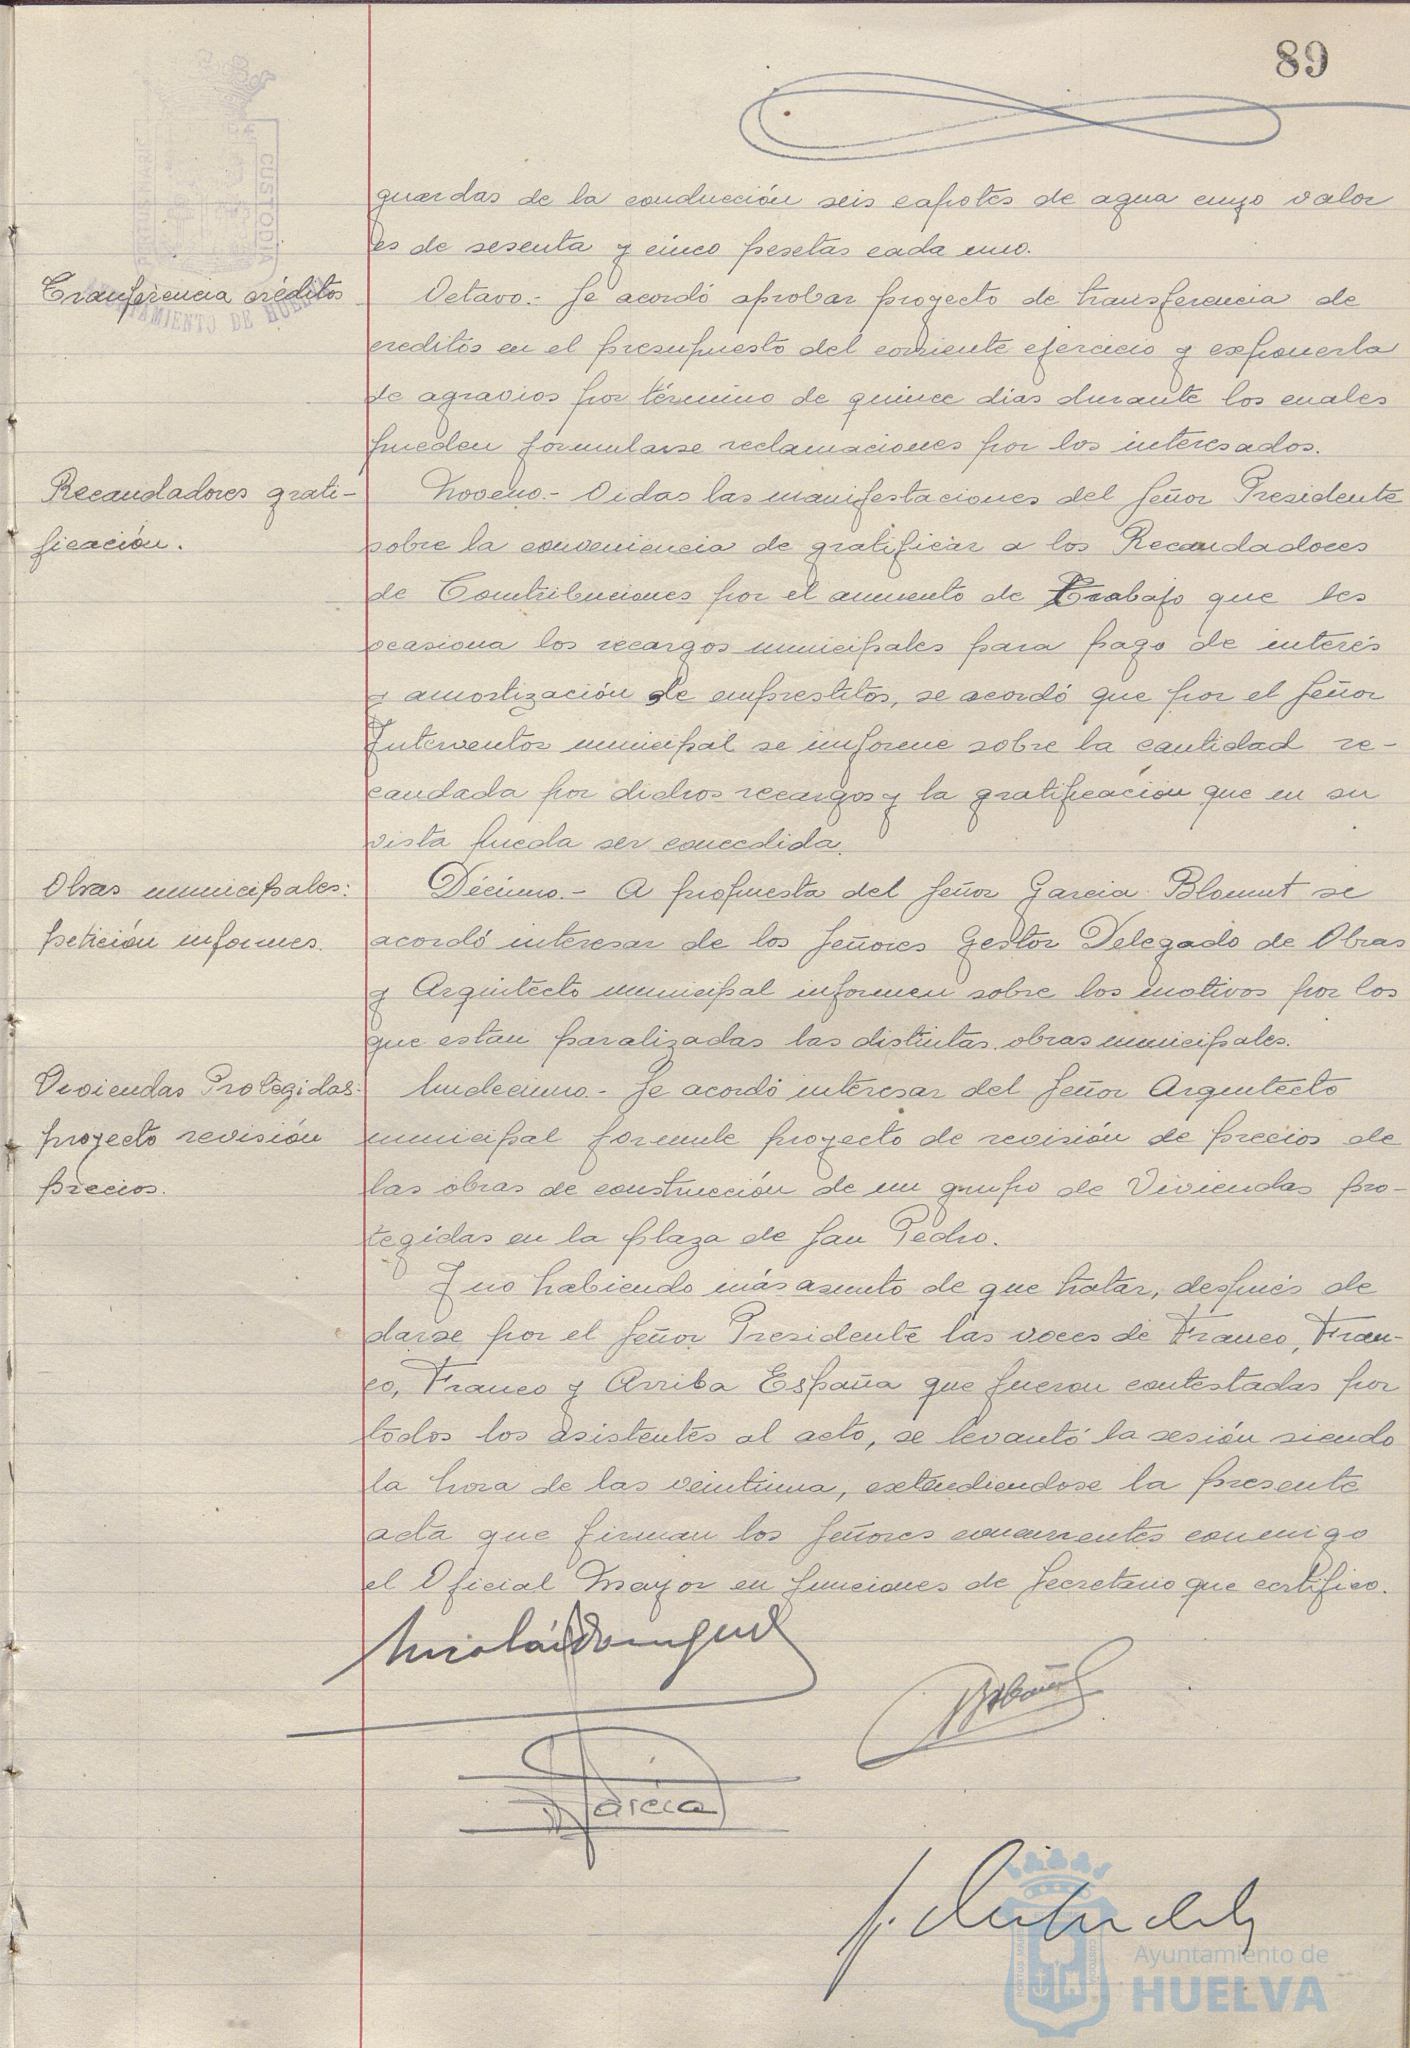 89
PORTUS MARIS
CUSTODIA
AYUNTAMIENTO DE HUELVA
guardas de la conducción seis capotes de agua cuyo valor
es de sesenta y cinco pesetas cada uno.
Tranferencia créditos
Octavo.- Se acordó aprobar proyecto de transferencia de
creditos en el presupuesto del corriente ejercicio y exponerla
de agravios por término de quince dias durante los cuales
pueden formularse reclamaciones por los interesados.
Recaudadores grati-
ficación.
Noveno.- Oidas las manifestaciones del Señor Presidente
sobre la conveniencia de gratificar a los Recaudadores
de Contribuciones por el aumento de Trabajo que les
ocasiona los recargos municipales para pago de interés
y amortización de emprestitos, se acordó que por el Señor
Interventor municipal se informe sobre la cantidad re-
caudada por dichos recargos y la gratificación que en su
vista pueda ser concedida.
Obras municipales:
petición informes.
Décimo.- A propuesta del Señor Garcia Blomut se
acordó interesar de los Señores Gestor Delegado de Obras
y Arquitecto municipal informen sobre los motivos por los
que estan paralizadas las distintas obras municipales.
Viviendas Protegidas:
proyecto revisión
precios.
Undecimo.- Se acordó interesar del Señor Arquitecto
municipal formule proyecto de revisión de precios de
las obras de construcción de un grupo de Viviendas pro-
tegidas en la plaza de San Pedro.
Y no habiendo más asunto de que tratar, después de
darse por el Señor Presidente las voces de Franco, Fran-
co, Franco y Arriba España que fueron contestadas por
todos los asistentes al acto, se levantó la sesión siendo
la hora de las veintiuna, extendiendose la presente
acta que firman los Señores concurrentes conmigo
el Oficial Mayor en funciones de Secretario que certifico.
Nicolás Dominguez
García
Ayuntamiento de
HUELVA